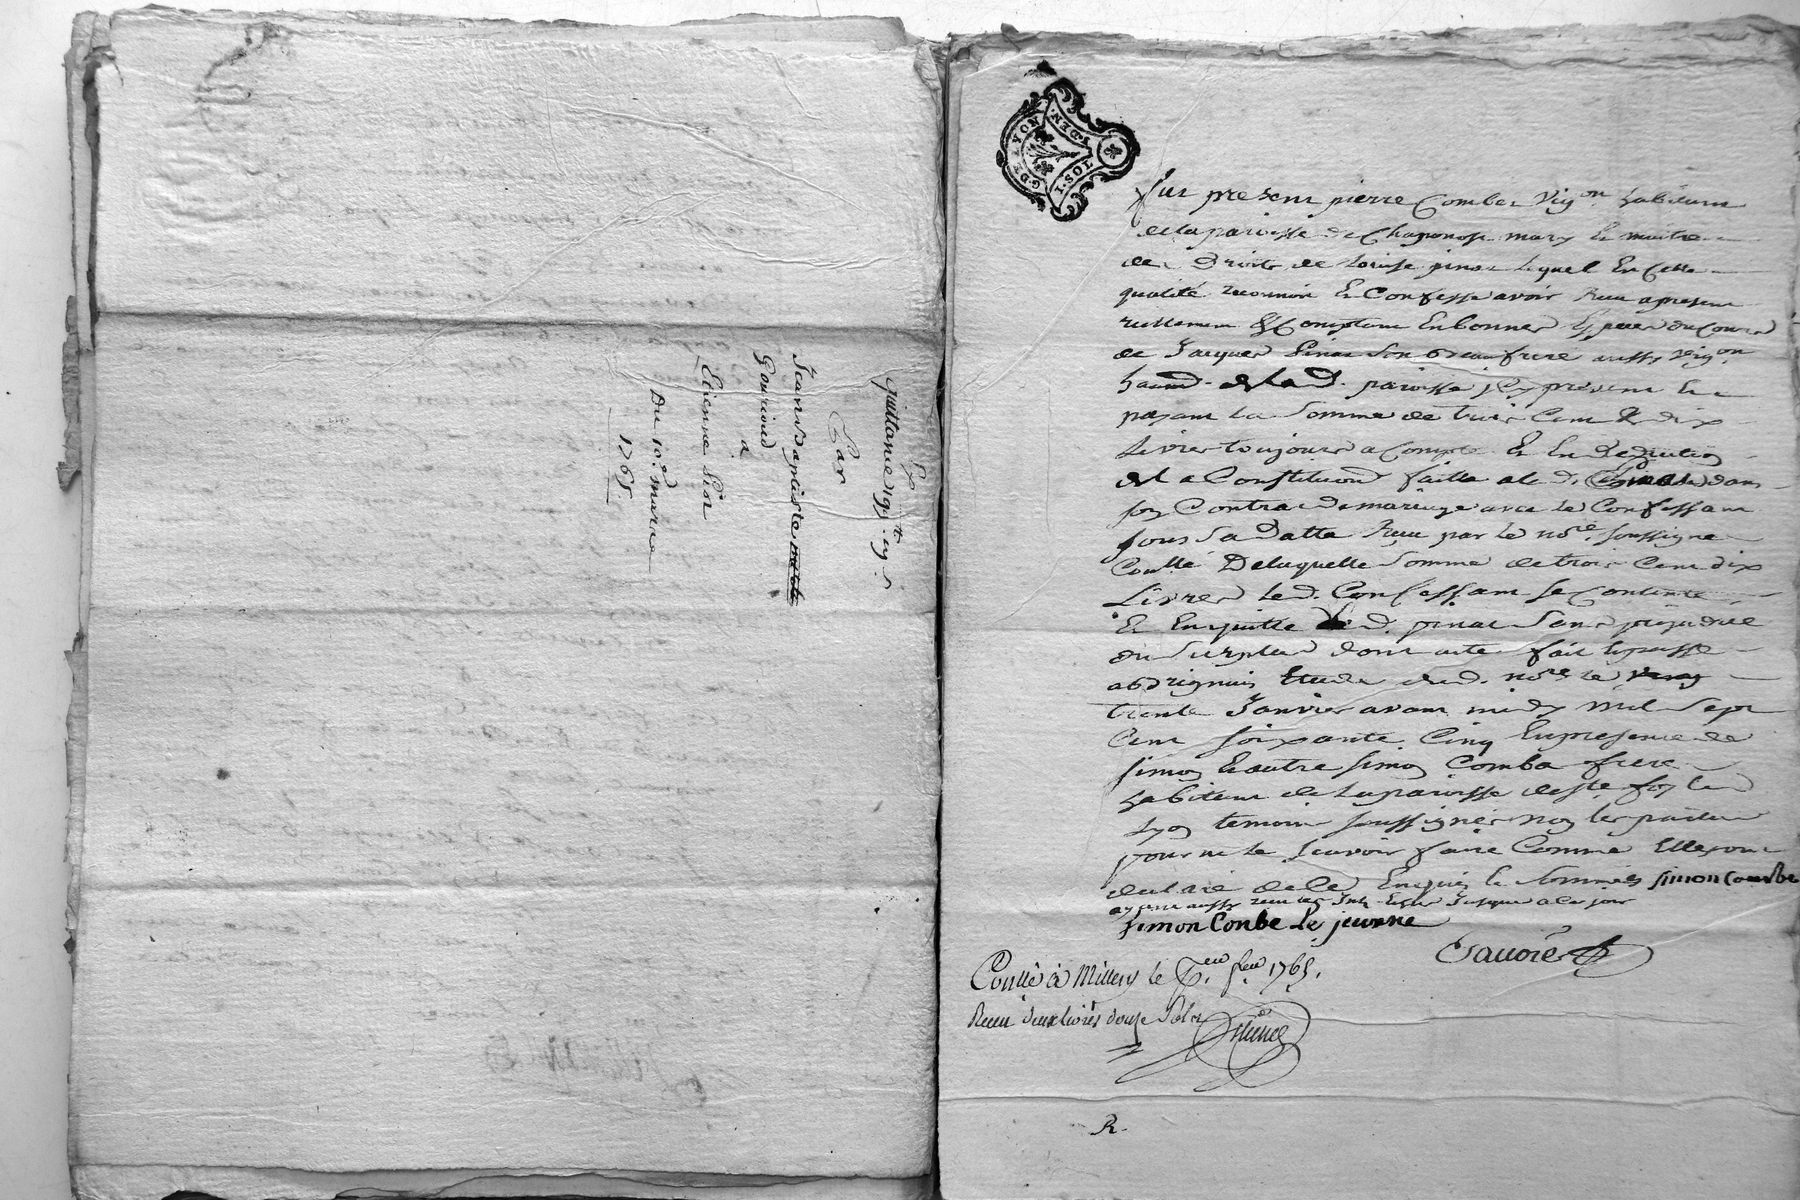 quittance 195
Par
Jean Baptiste
Gourioud
à
Etienne Pin
Du 10e. mars
1765
G. DE LYON
1. SOL
1. DEN.
Fut present pierre Combe Vig.on habitant
de la paroisse de Chaponost mary Et maitre
des Droits de Louise pinat lequel En cette
qualité reconnoit Et Confesse avoir Receu a present
reellement Et Comptant En bonnes Especes du Cours
de Jacques Pinat Son beaufrere aussy vigon
habitt. de lad. paroisse icy present Et
payant La Somme de trois Cent dix
Livres toujours a Compte Et En Deduction
de la Constitution faitte a lad. pinat dans
son Contrat de mariage avec le Confessant
sous Sa Datte Receu par le nore. soussigné
Conllé De laquelle Somme de trois Cent dix
Livres led. Confessant se Contente
Et En quitte led. pinat Sans prejudice
du Surplus dont acte fait Et passé
a Brignais Etude dud. nore le
trente Janvier avant midy mil Sept
Cent soixante Cinq En presence de
Simon Et autre Simon Combe frere
habitant de la paroisse de ste foy les
Lyon temoins soussignés non les parties
pour ne le scavoir faire Comme Elles ont
declaré de ce Enquis Et Sommés simon Combe
ayant aussy receu les Jusque a ce jour
simon Conbe le jeunne
Savoie
Conllé à Millery le 7eme. feu 1765.
Receu deux livres douze Sols
R.